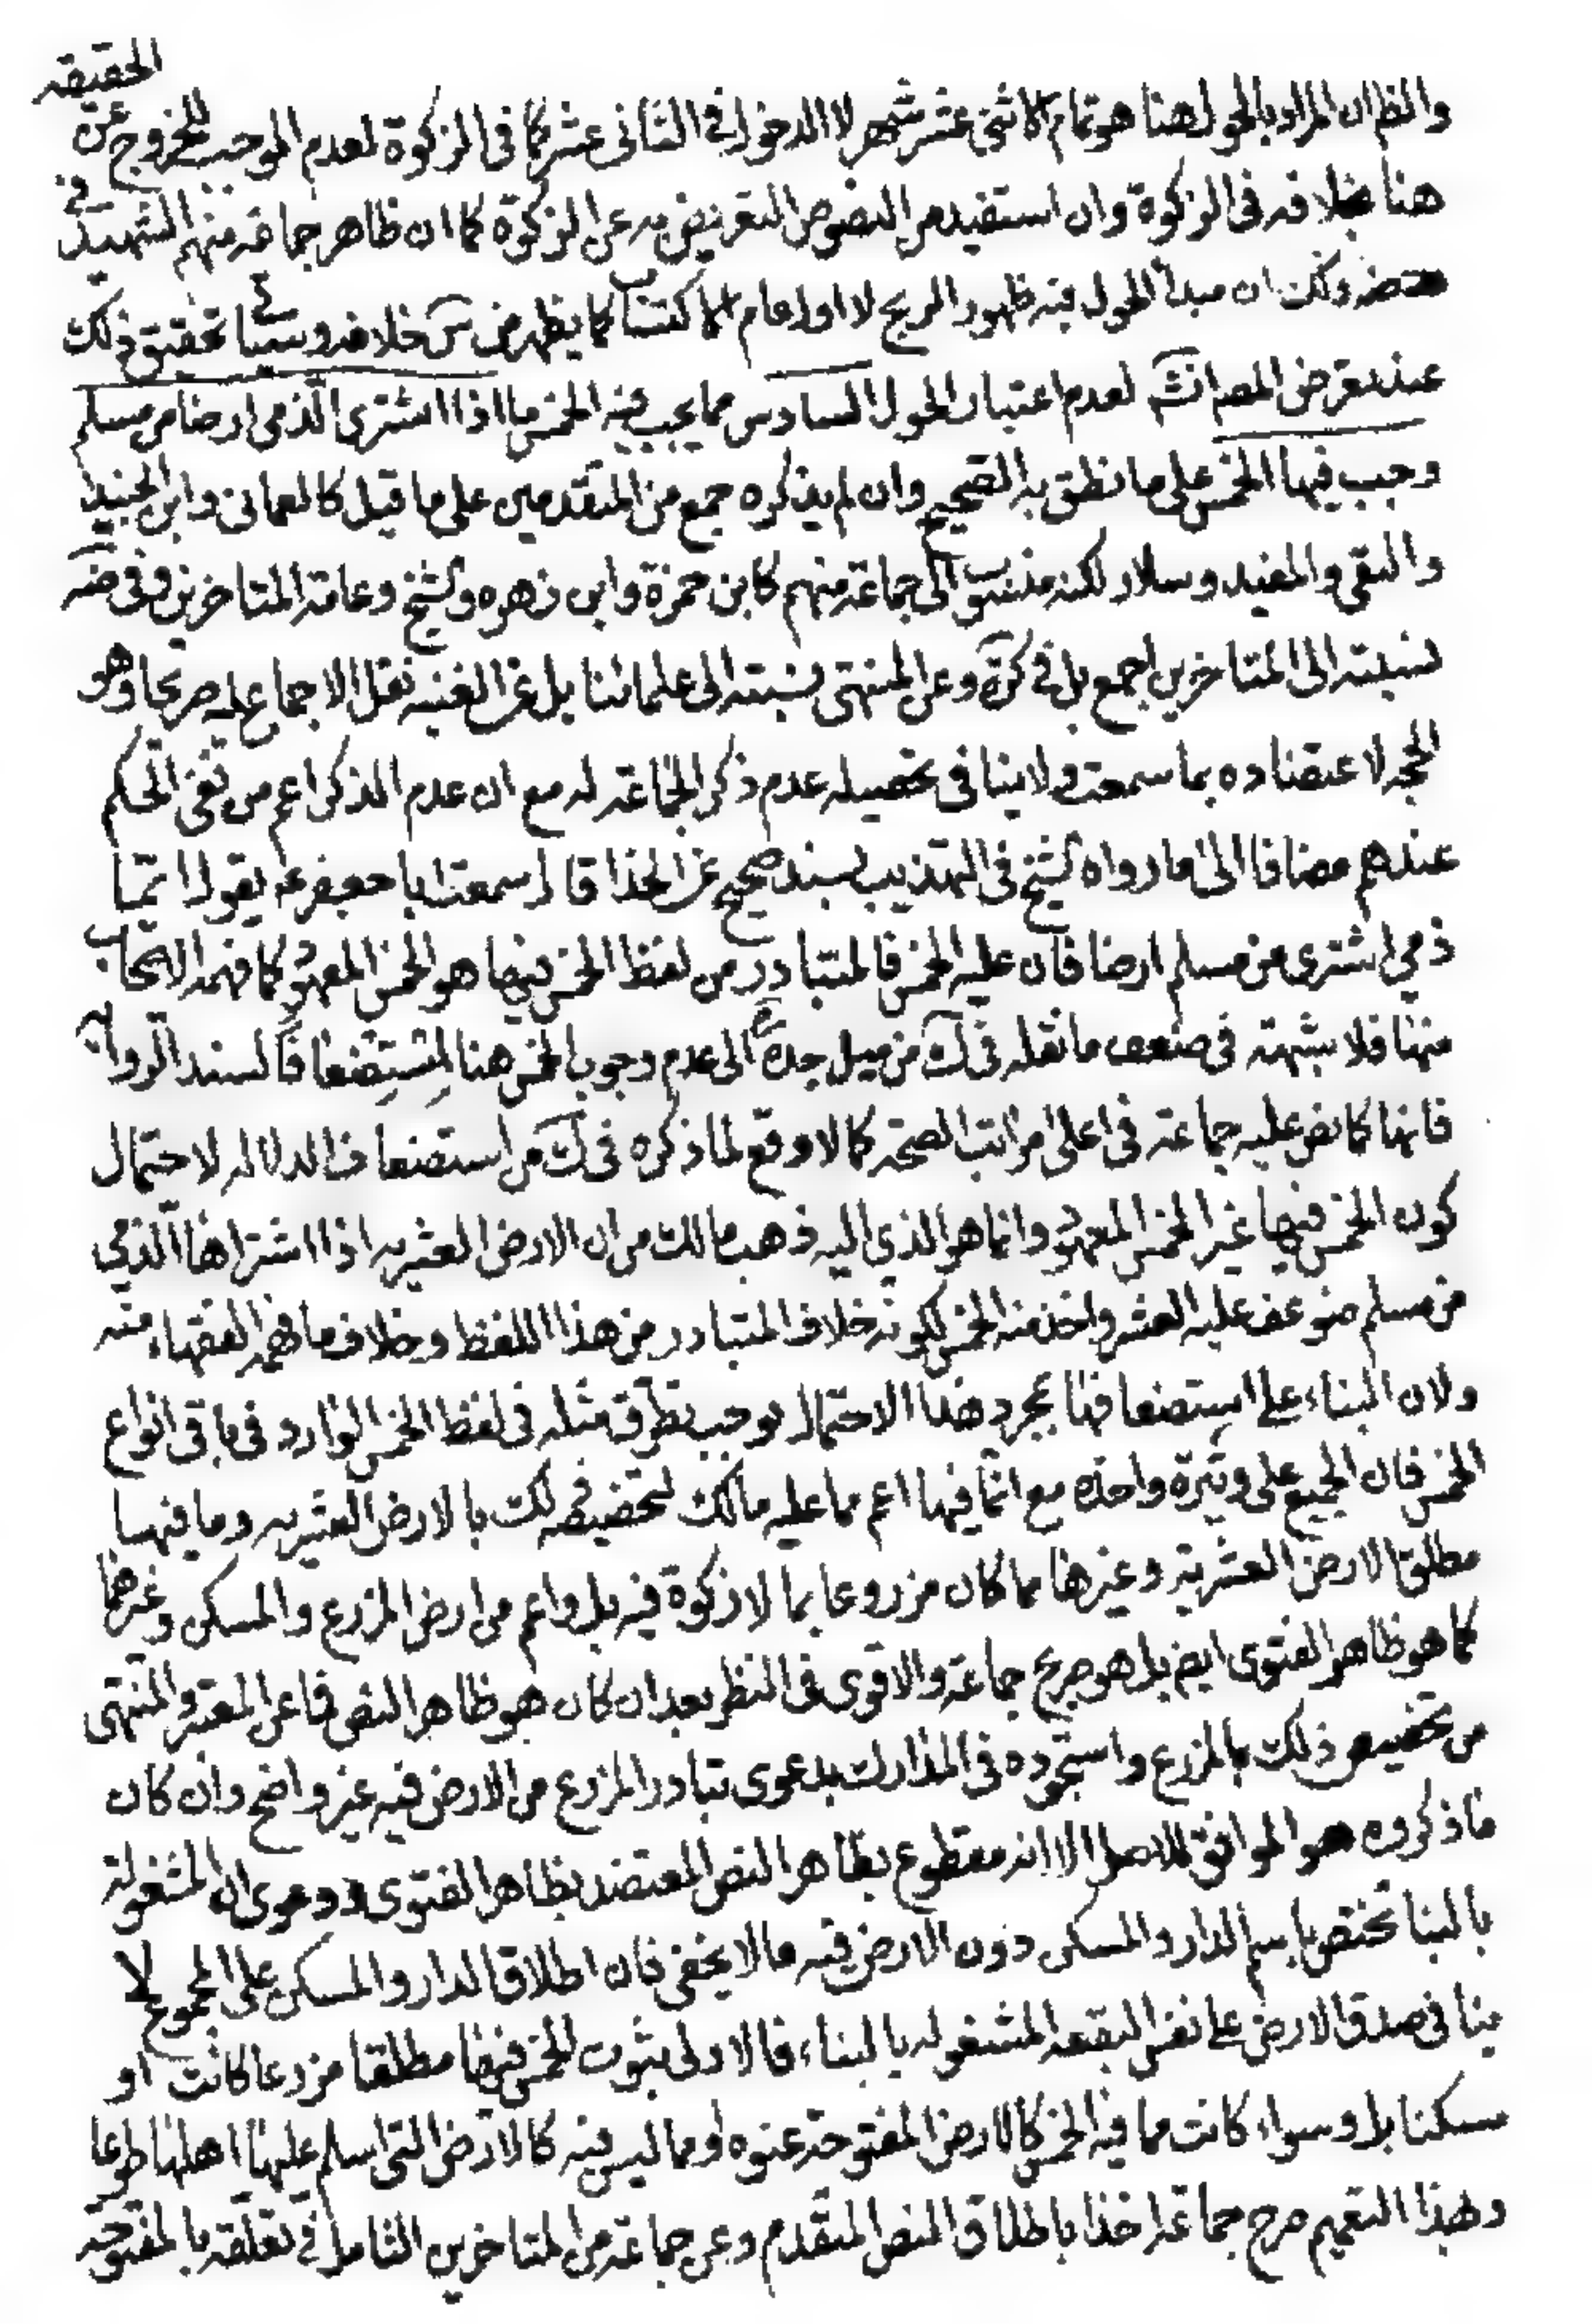 الحقيقه
والظ ان المراد بالحول هنا هو تمام الاثنى عشر شهر لا الدخول في الثانى عشر كما فى الزكوة لعدم الموجب للخروج عن
هنا بخلافه فى الزكوة وان استفيد من النصوص التعويض به عن الزكوة كما ان ظاهر جماعة منهم الشهيد في
ضه وكك ان مبدأ الحول فيه ظهور الربح لا اول عام الاكتساب كما يظهر من س خلافه وسيأتي تحقيق ذلك
عند تعرض المصانف لعدم اعتبار الحول السادس مما يجب فيه الخمس ما اذا اشترى الذمى ارضا من مسلم
وجب فيها الخمس على ما نطق به الصحيح وان لم يذكره جمع من المتقدمين على ما قيل كالعمانى وابن الجنيد
والتقى والمفيد وسلار لكنه منسوب الى جماعة منهم كابن حمزة وابن زهره والشيخ وعامة المتاخرين وفى ضه
نسبته الى المتاخرين اجمع بل فى كرة وعن المنتهى نسبته الى علمائنا بل عن الغنيه نقل الاجماع عليه صريحا وهو
الحجه لاعتضاده بما سمعت ولا ينافى تحصيله عدم ذكر الجماعة له مع ان عدم الذكر اعم من نفى الحكم
عندهم مضافا الى ما رواه الشيخ فى التهذيب بسند صحيح عن الحذا قال سمعت ابا جعفر ع يقول ايما
ذمي اشترى من مسلم ارضا فان عليه الخمس فالمتبادر من لفظ الخمس فيها هو الخمس المعهود كما فهمه الاصحاب
منها فلا شبهة فى ضعف ما نقله فى ك من ميل جده الى عدم وجوب الخمس هنا مستضعفا لسند الرواية
فانها كما نص عليه جماعة فى اعلى مراتب الصحة كما لا وقع لما ذكره فى ك من استضعاف الدلالة لاحتمال
كون الخمس فيها غير الخمس المعهود وانما هو الذي اليه ذهب مالك من ان الارض العشريه اذا اشتراها الذمي
من مسلم ضوعف عليه العشر واخذ منه الخمس لكونه خلاف المتبادر من هذا اللفظ وخلاف ما فهمه الفقهاء منه
ولان البناء على استضعافها بمجرد هذا الاحتمال يوجب تطرق مثله فى لفظ الخمس الوارد فى باقى انواع
الخمس فان الجميع على وتيرة واحدة مع ان ما فيها اعم مما عليه مالك لتخصيصه لك بالارض العشريه وما فيها
مطلق الارض العشرية وغيرها مما كان مزروعا بما لا زكوة فيه بل واعم من ارض المزرع والمسكن وغيرهما
كما هو ظاهر الفتوى ايض بل هو صريح جماعة والاقوى فى النظر بعد ان كان هو ظاهر النص فما عن المعتبر والمنتهى
من تخصيص ذلك بالمزرع واستجوده فى المدارك بدعوى تبادر المزرع من الارض فيه غير واضح وان كان
ما ذكروه هو الموافق للاصل الا انه مقطوع بظاهر النص المعتضد بظاهر الفتوى ودعوى ان المشغولة
بالبنا تختص باسم الدار والمسكن دون الارض فيه ما لا يخفى فان اطلاق الدار والمسكن على المجموع لا
ينافى صدق الارض على نفس البقعه المشغوله بالبناء فالاولى ثبوت الخمس فيها مطلقا مزرعا كانت او
مسكنا بل وسواء كانت مما فيه الخمس كالارض المفتوحة عنوه او مما ليس فيه كالارض التى اسلم عليها اهلها طوعا
وبهذا التعميم صرح جماعة اخذا باطلاق النص المتقدم وعن جماعة من المتاخرين التامل فى تعلقه بالمفتوحه